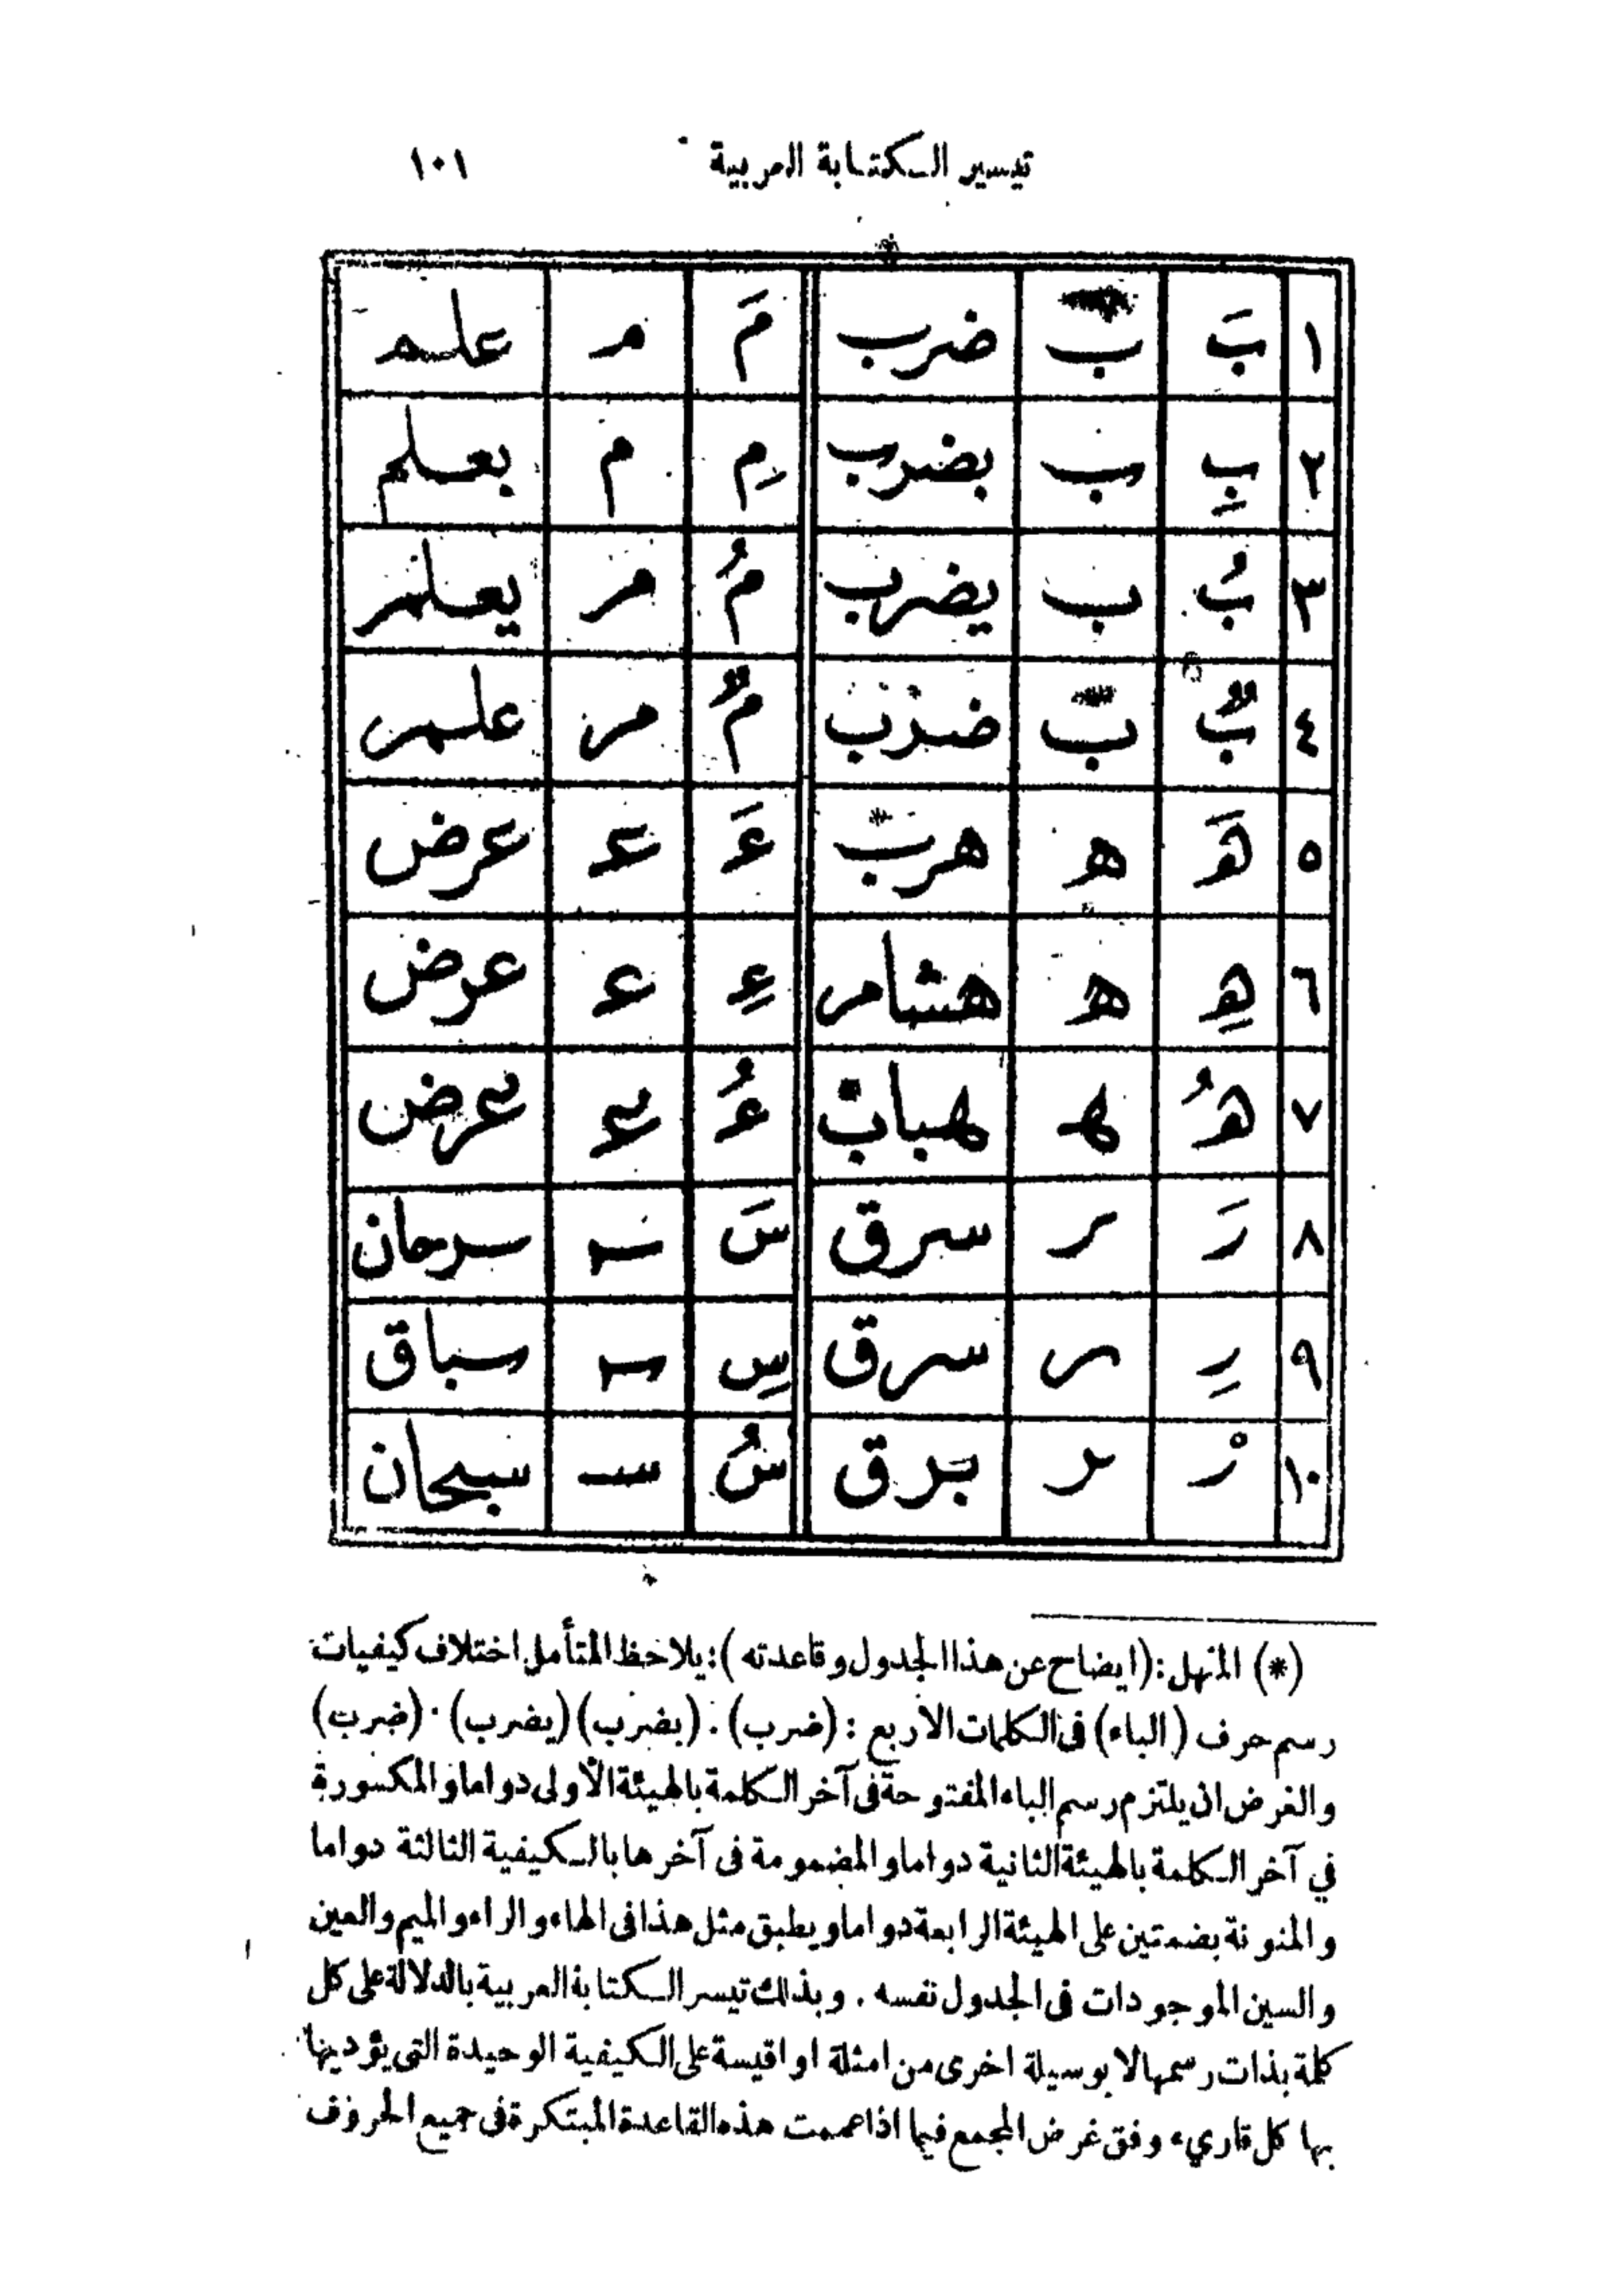 تيسير الكتابة العربية ١٠١
١ بَ ب ضرب مَ م علم
٢ بِ ب بضرب مِ م بعلم
٣ بُ ب يضرب مُ م يعلم
٤ بٌ ب ضرب مٌ م علم
٥ هَ ه هرب عَ ع عرض
٦ هِ ه هشام عِ ع عرض
٧ هُ ه هباب عُ ع عرض
٨ رَ ر سرق سَ س سرحان
٩ رِ ر سرق سِ س سباق
١٠ رْ ر برق سُ س سبحان
(*) المنهل : (ايضاح عن هذا الجدول وقاعدته) : يلاحظ المتأمل اختلاف كيفيات
رسم حرف (الباء) فى الكلمات الاربع : (ضرب) . (بضرب) (يضرب) . (ضرب)
والغرض ان يلتزم رسم الباء المفتوحة فى آخر الكلمة بالهيئة الأولى دواما والمكسورة
في آخر الكلمة بالهيئة الثانية دواما والمضمومة فى آخرها بالكيفية الثالثة دواما
والمنونة بضمتين على الهيئة الرابعة دواما ويطبق مثل هذا فى الهاء والراء والميم والعين
والسين الموجودات فى الجدول نفسه . وبذلك تيسر الكتابة العربية بالدلالة على كل
كلمة بذات رسمها لا بوسيلة اخرى من امثلة او اقيسة على الكيفية الوحيدة التى يؤديها
بها كل قاريء وفق غرض المجمع فيما اذا عممت هذه القاعدة المبتكرة فى جميع الحروف